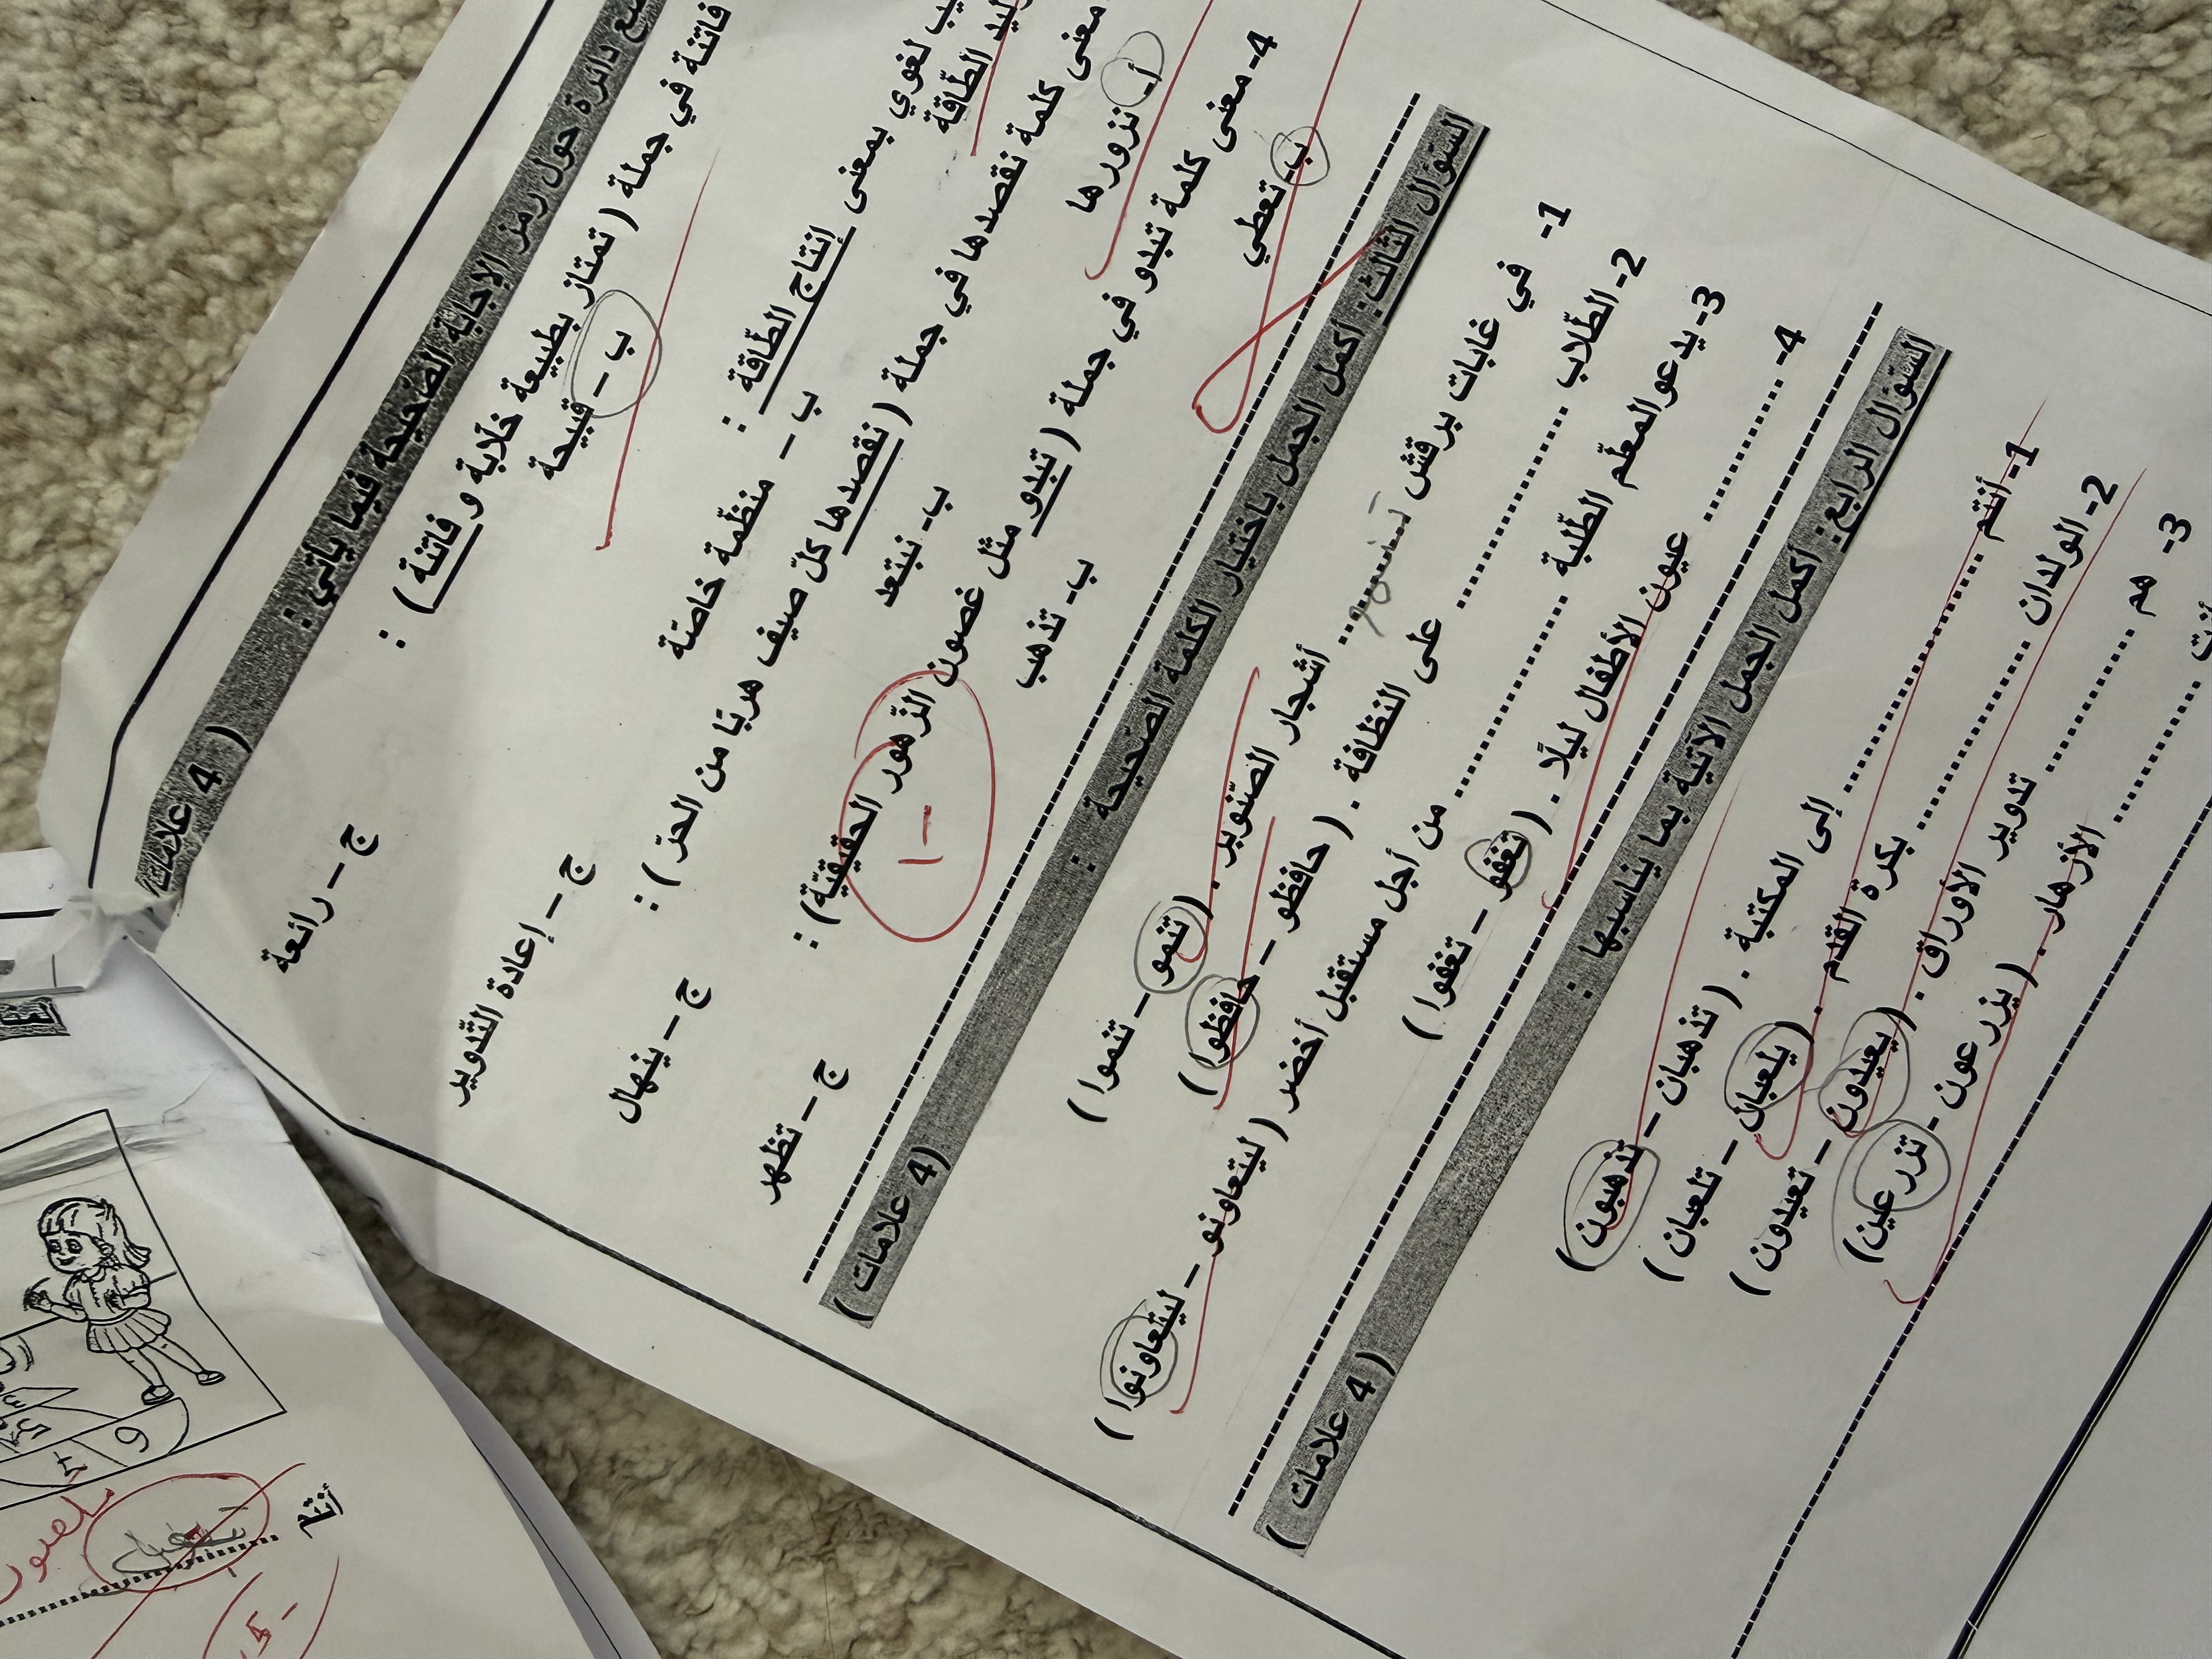 دائرة حول رمز الإجابة الصّحيحة فيما يأتي : ( 4 علامات
فاتنة في جملة ( تمتاز بطبيعة خلّابة و فاتنة ) :
ب – قبيحة ج – رائعة
لغوي بمعنى إنتاج الطّاقة :
الطّاقة ب – منظّمة خاصّة ج – إعادة التّدوير
معنى كلمة نقصدها في جملة ( نقصدها كلّ صيف هربًا من الحرّ ) :
أ- نزورها ب- نبتعد ج – ينهال
4- معنى كلمة تبدو في جملة ( تبدو مثل غصون الزّهور الحقيقيّة) :
ب- تعطي ب- تذهب ج – تظهر
1-
السّؤال الثّالث: أكمل الجمل باختيار الكلمة الصّحيحة : ( 4 علامات )
1- في غابات برقش ........... أشجار الصّنوبر . ( تنمو – تنموا )
2- الطّلاب .................... على النظافة . ( حافظو – حافظوا )
3- يدعو المعلّم الطّلبة .................... من أجل مستقبل أخضر ( ليتعاونو – ليتعاونوا )
4- .............. عيون الأطفال ليلًا . ( تغفو – تغفوا )
السّؤال الرّابع: أكمل الجمل الآتية بما يناسبها : ( 4 علامات )
1- أنتم .................... إلى المكتبة . ( تذهبان – تذهبون )
2- الولدان .................... بكرة القدم . ( يلعبان – تلعبان )
3- هم .............. تدوير الأوراق . ( يعيدون – تعيدون )
.............. الأزهار . ( يزرعون – تزرعين )
أنتم